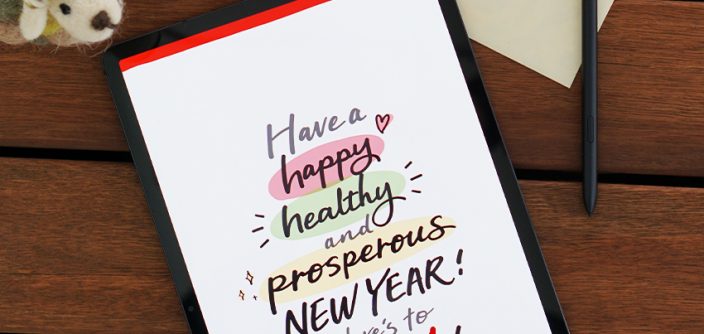 Have a
happy
healthy
and
prosperous
NEW YEAR!
here's to